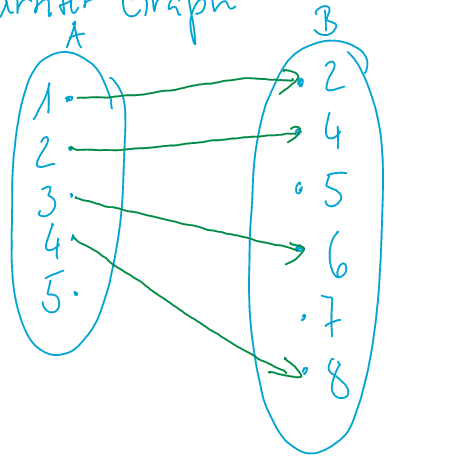 Graph
A
B
1
2
3
4
5
2
4
5
6
7
8